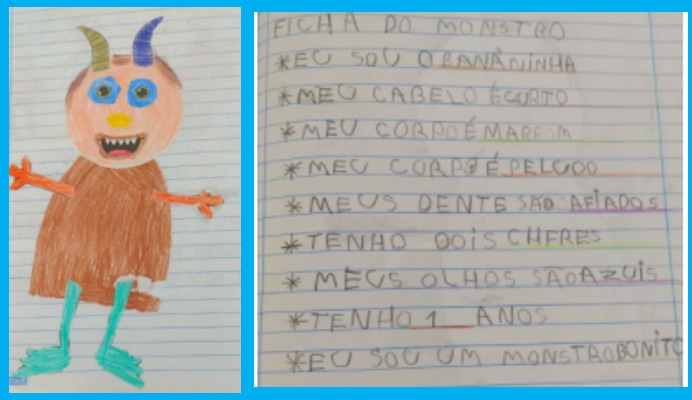 FICHA DO MONSTRO
*EU SOU O BANÂNINHA
*MEU CABELO É CURTO
*MEU CORPO É MARROM
*MEU CORPO É PELUDO
*MEUS DENTE SÃO AFIADOS
*TENHO DOIS CHFRES
*MEUS OLHOS SÃO AZUIS
*TENHO 1 ANOS
*EU SOU UM MONSTRO BONITO